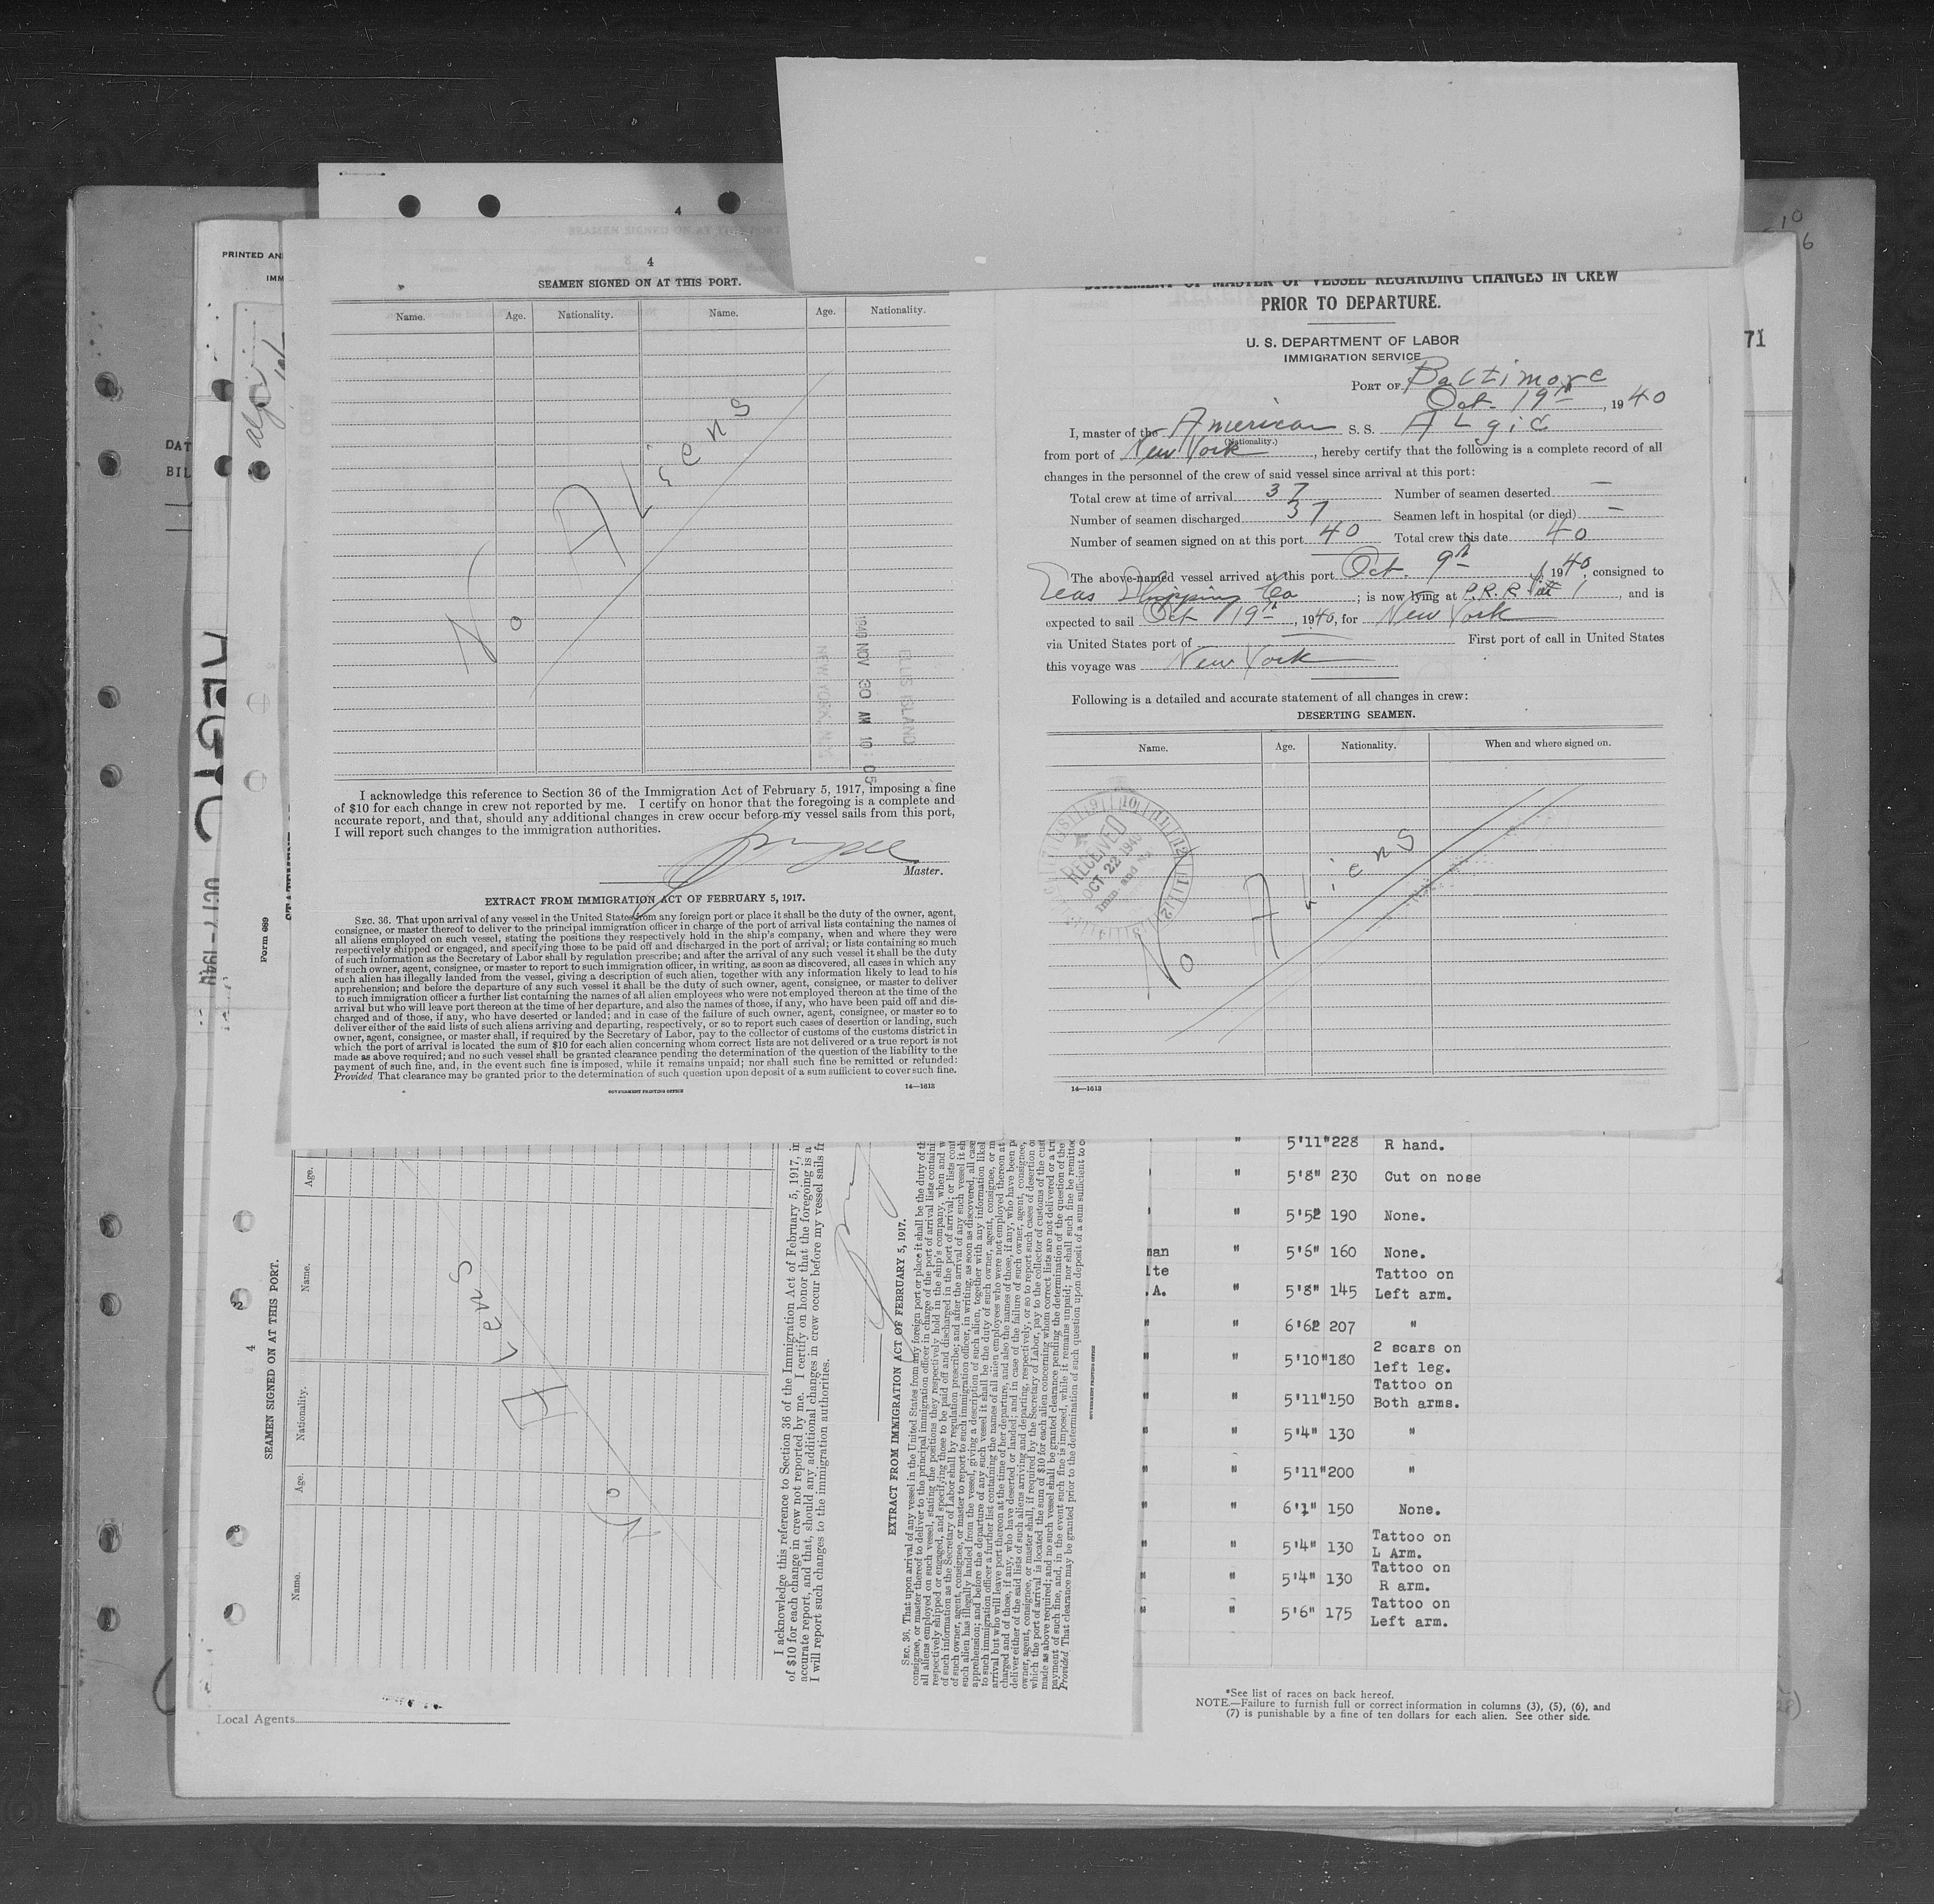 4
SEAMEN SIGNED ON AT THIS PORT.
Name. Age. Nationality. Name. Age. Nationality.
No Aliens
ELLIS ISLAND
1940 NOV 30 AM 10 05
NEW YORK, N.Y.
I acknowledge this reference to Section 36 of the Immigration Act of February 5, 1917, imposing a fine
of $10 for each change in crew not reported by me. I certify on honor that the foregoing is a complete and
accurate report, and that, should any additional changes in crew occur before my vessel sails from this port,
I will report such changes to the immigration authorities.
Master.
EXTRACT FROM IMMIGRATION ACT OF FEBRUARY 5, 1917.
SEC. 36. That upon arrival of any vessel in the United States from any foreign port or place it shall be the duty of the owner, agent,
consignee, or master thereof to deliver to the principal immigration officer in charge of the port of arrival lists containing the names of
all aliens employed on such vessel, stating the positions they respectively hold in the ship's company, when and where they were
respectively shipped or engaged, and specifying those to be paid off and discharged in the port of arrival; or lists containing so much
of such information as the Secretary of Labor shall by regulation prescribe; and after the arrival of any such vessel it shall be the duty
of such owner, agent, consignee, or master to report to such immigration officer, in writing, as soon as discovered, all cases in which any
such alien has illegally landed from the vessel, giving a description of such alien, together with any information likely to lead to his
apprehension; and before the departure of any such vessel it shall be the duty of such owner, agent, consignee, or master to deliver
to such immigration officer a further list containing the names of all alien employees who were not employed thereon at the time of the
arrival but who will leave port thereon at the time of her departure, and also the names of those, if any, who have been paid off and dis-
charged and of those, if any, who have deserted or landed; and in case of the failure of such owner, agent, consignee, or master so to
deliver either of the said lists of such aliens arriving and departing, respectively, or so to report such cases of desertion or landing, such
owner, agent, consignee, or master shall, if required by the Secretary of Labor, pay to the collector of customs of the customs district in
which the port of arrival is located the sum of $10 for each alien concerning whom correct lists are not delivered or a true report is not
made as above required; and no such vessel shall be granted clearance pending the determination of the question of the liability to the
payment of such fine, and, in the event such fine is imposed, while it remains unpaid; nor shall such fine be remitted or refunded:
Provided That clearance may be granted prior to the determination of such question upon deposit of a sum sufficient to cover such fine.
GOVERNMENT PRINTING OFFICE 14—1613
STATEMENT OF MASTER OF VESSEL REGARDING CHANGES IN CREW
PRIOR TO DEPARTURE.
U. S. DEPARTMENT OF LABOR
IMMIGRATION SERVICE
PORT OF Baltimore
Oct. 19th, 1940
I, master of the American S. S. ALgic
(Nationality.)
from port of New York, hereby certify that the following is a complete record of all
changes in the personnel of the crew of said vessel since arrival at this port:
Total crew at time of arrival 37 Number of seamen deserted —
Number of seamen discharged 37 Seamen left in hospital (or died) —
Number of seamen signed on at this port 40 Total crew this date 40
The above-named vessel arrived at this port Oct. 9th, 1940, consigned to
Shipping Co; is now lying at P.R.R. 1, and is
expected to sail Oct 19th, 1940, for New York
via United States port of First port of call in United States
this voyage was New York
Following is a detailed and accurate statement of all changes in crew:
DESERTING SEAMEN.
Name. Age. Nationality. When and where signed on.
RECEIVED
OCT 22 1940
No Aliens
14—1613
PRINTED AN
IMM
DAT
BIL
71
Form 689
OCT 7 - 1940
4
SEAMEN SIGNED ON AT THIS PORT.
Name. Age. Nationality. Name. Age.
No Aliens
I acknowledge this reference to Section 36 of the Immigration Act of February 5, 1917, in
of $10 for each change in crew not reported by me. I certify on honor that the foregoing is a
accurate report, and that, should any additional changes in crew occur before my vessel sails fr
I will report such changes to the immigration authorities.
EXTRACT FROM IMMIGRATION ACT OF FEBRUARY 5, 1917.
Local Agents
" 5'11" 228 R hand.
" 5'8" 230 Cut on nose
" 5'5 190 None.
man " 5'6" 160 None.
ite Tattoo on
.A. " 5'8" 145 Left arm.
" " 6'6 207 "
2 scars on
" " 5'10" 180 left leg.
Tattoo on
" " 5'11" 150 Both arms.
" " 5'4" 130 "
" " 5'11" 200 "
" " 6'1" 150 None.
Tattoo on
" " 5'4" 130 L Arm.
Tattoo on
" " 5'4" 130 R arm.
Tattoo on
" " 5'6" 175 Left arm.
*See list of races on back hereof.
NOTE.—Failure to furnish full or correct information in columns (3), (5), (6), and
(7) is punishable by a fine of ten dollars for each alien. See other side.